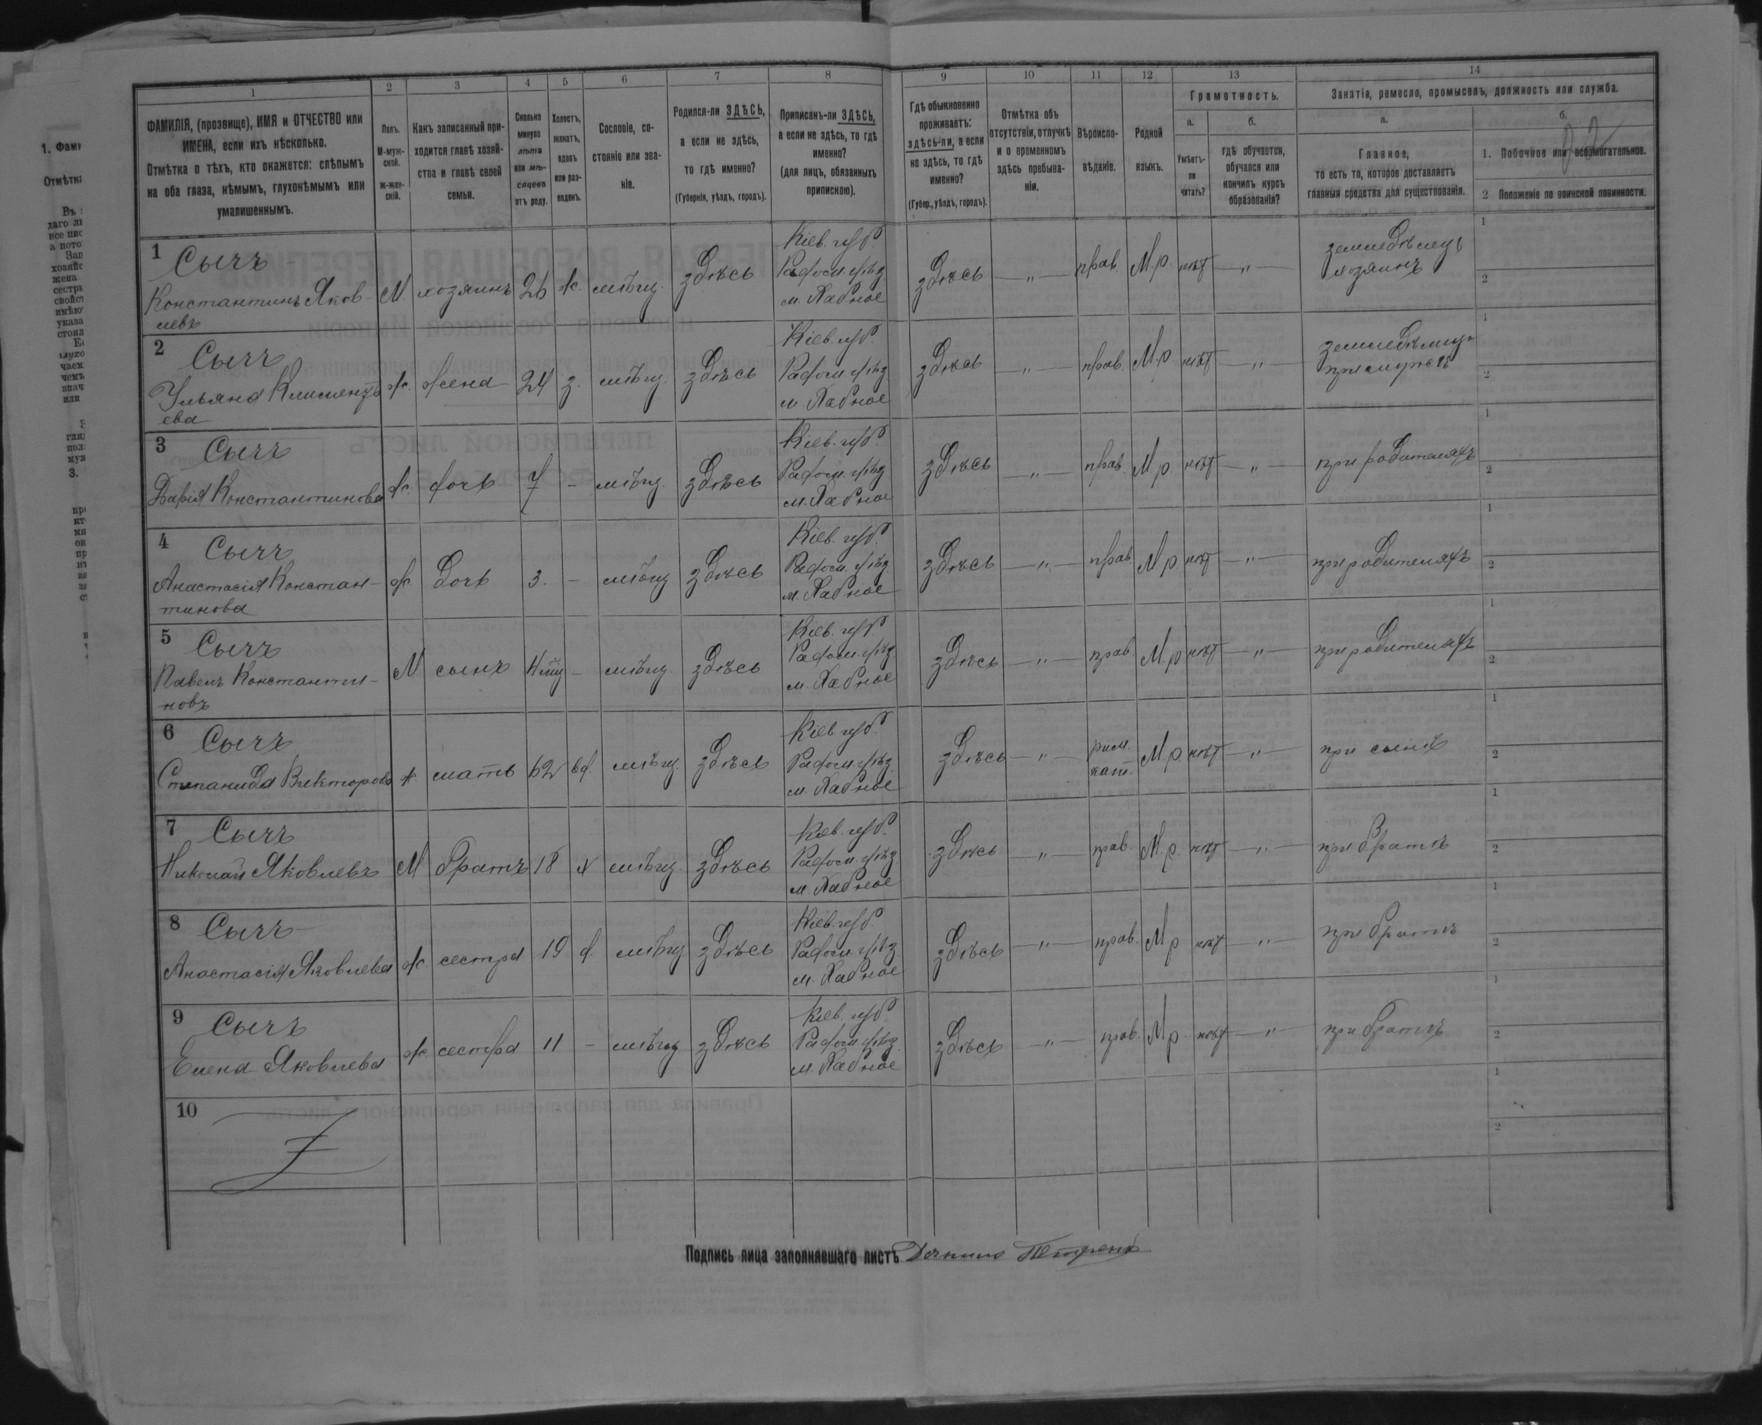 1 2 3 4 5 6 7 8 9 10 11 12 13 14
ФАМИЛІЯ, (прозвище), ИМЯ и ОТЧЕСТВО или
ИМЕНА, если ихъ нѣсколько.
Отмѣтка о тѣхъ, кто окажется: слѣпымъ
на оба глаза, нѣмымъ, глухонѣмымъ или
умалишеннымъ.
Полъ.
М-муж-
ской.
ж-жен-
скій.
Какъ записанный при-
ходится главѣ хозяй-
ства и главѣ своей
семьи.
Сколько
минуло
лѣтъ
или мѣ-
сяцевъ
отъ роду.
Холостъ,
женатъ,
вдовъ
или раз-
веденъ.
Сословіе, со-
стояніе или зва-
ніе.
Родился-ли ЗДѢСЬ,
а если не здѣсь,
то гдѣ именно?
(Губернія, уѣздъ, городъ).
Приписанъ-ли ЗДѢСЬ,
а если не здѣсь, то гдѣ
именно?
(для лицъ, обязанныхъ
припискою).
Гдѣ обыкновенно
проживаетъ:
здѣсь-ли, а если
не здѣсь, то гдѣ
именно?
(Губер., уѣздъ, городъ).
Отмѣтка объ
отсутствіи, отлучкѣ
и о временномъ
здѣсь пребыва-
ніи.
Вѣроиспо-
вѣданіе.
Родной
языкъ.
Грамотность.
а.
Умѣетъ-
ли
читать?
б.
гдѣ обучается,
обучался или
кончилъ курсъ
образованія?
Занятія, ремесло, промыселъ, должность или служба.
а.
Главное,
то есть то, которое доставляетъ
главныя средства для существованія.
б.
1. Побочное или вспомогательное.
2 Положеніе по воинской повинности.
1 Сычъ
Константинъ Яков-
левъ
М хозяинъ 26 ж. мѣщ. здѣсь
Кіев. губ.
Радом. уѣзд
м. Хабное
здѣсь " прав. М.р. нѣт "
земледѣлецъ
хозяинъ
2 Сычъ
Ульяна Климентъ
ева
ж. жена 24 з. мѣщ. здѣсь
Кіев. губ.
Радом. уѣзд
м. Хабное
здѣсь " прав. М.р нѣт "
земледѣлецъ
при мужѣ
3 Сычъ
Дарія Константинова
ж. дочь 7 - мѣщ. здѣсь
Кіев. губ.
Радом. уѣзд
м. Хабное
здѣсь " прав М.р. нѣт "
при родителяхъ
4 Сычъ
Анастасія Констан-
тинова
ж. дочь 3. - мѣщ здѣсь
Кіев. губ.
Радом. уѣзд
м. Хабное
здѣсь " прав М.р нѣт "
при родителяхъ
5 Сычъ
Павелъ Константи-
новъ
М сынъ - мѣщ. здѣсь
Кіев. губ
Радом. уѣзд
м. Хабное
здѣсь " прав. М.р нѣт "
при родителяхъ
6 Сычъ
Степанида Викторова
ж мать 62 вд. мѣщ. здѣсь
Кіев. губ.
Радом. уѣзд
м. Хабное
здѣсь " рим.
кат. М.р нѣт "
при сынѣ
7 Сычъ
Николай Яковлевъ
М братъ 18 х мѣщ. здѣсь
Кіев. губ.
Радом. уѣзд.
м. Хабное
здѣсь " прав. М.р. нѣт "
при братѣ
8 Сычъ
Анастасія Яковлева
ж. сестра 19 д. мѣщ здѣсь
Кіев. губ.
Радом. уѣзд
м. Хабное
здѣсь " прав. М.р нѣт "
при братѣ
9 Сычъ
Елена Яковлева
ж. сестра 11 - мѣщ здѣсь
Кіев. губ.
Радом. уѣзд.
м. Хабное
здѣсь " прав. М.р. нѣт "
при братѣ
10
Подпись лица заполнявшаго листъ